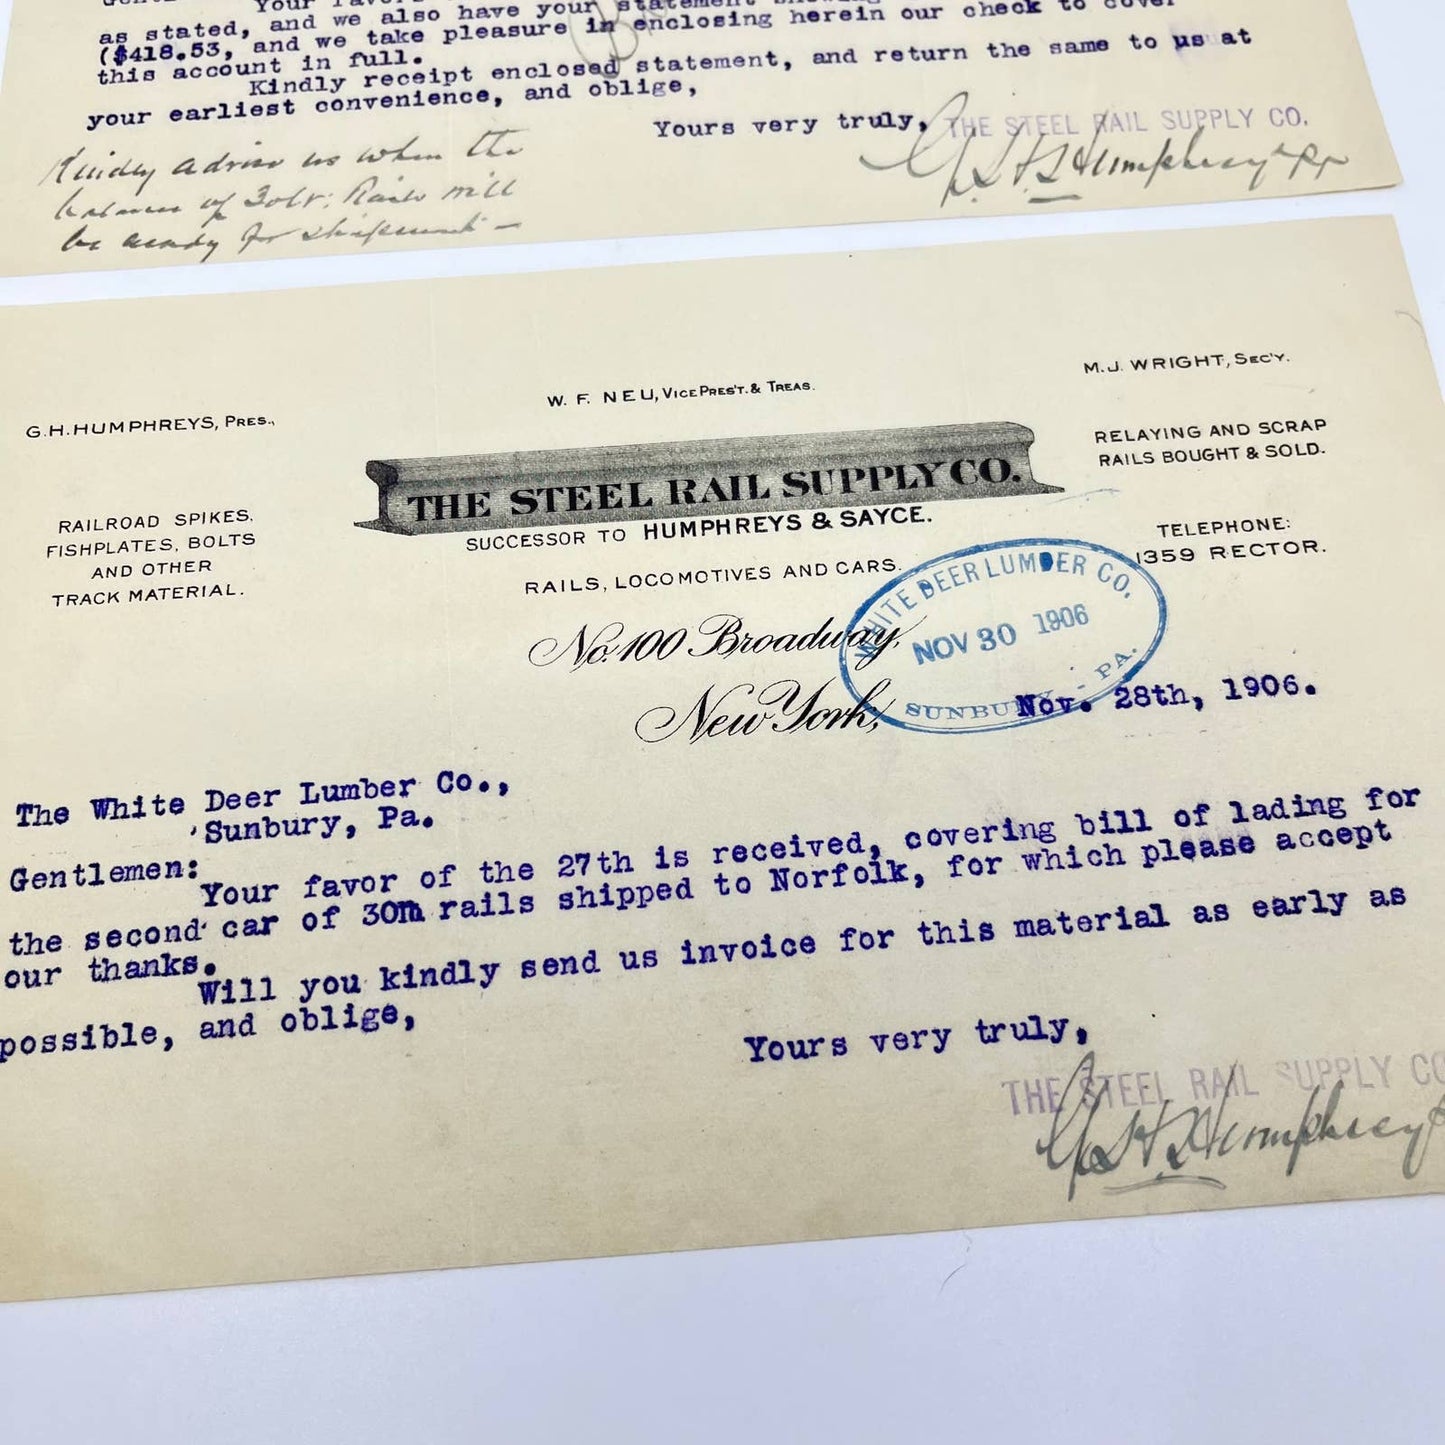 Your
as stated, and we also have your statement
($418.53, and we take pleasure in enclosing herein our check to cover
this account in full.
Kindly receipt enclosed statement, and return the same to us at
your earliest convenience, and oblige,
Yours very truly,
THE STEEL RAIL SUPPLY CO.
Kindly advise us when the
balance of Rails will
be ready for shipment —
G.H. Humphreys
W. F. NEU, VICE PRES'T. & TREAS.
M.J. WRIGHT, SEC'Y.
G.H. HUMPHREYS, PRES.,
THE STEEL RAIL SUPPLY CO.
SUCCESSOR TO HUMPHREYS & SAYCE.
RAILS, LOCOMOTIVES AND CARS.
RELAYING AND SCRAP
RAILS BOUGHT & SOLD.
RAILROAD SPIKES,
FISHPLATES, BOLTS
AND OTHER
TRACK MATERIAL.
TELEPHONE:
1359 RECTOR.
No. 100 Broadway,
New York,
WHITE DEER LUMBER CO.
NOV 30 1906
SUNBURY - PA.
Nov. 28th, 1906.
The White Deer Lumber Co.,
Sunbury, Pa.
Gentlemen:
Your favor of the 27th is received, covering bill of lading for
the second car of 30m rails shipped to Norfolk, for which please accept
our thanks.
Will you kindly send us invoice for this material as early as
possible, and oblige,
Yours very truly,
THE STEEL RAIL SUPPLY CO
G.H. Humphreys